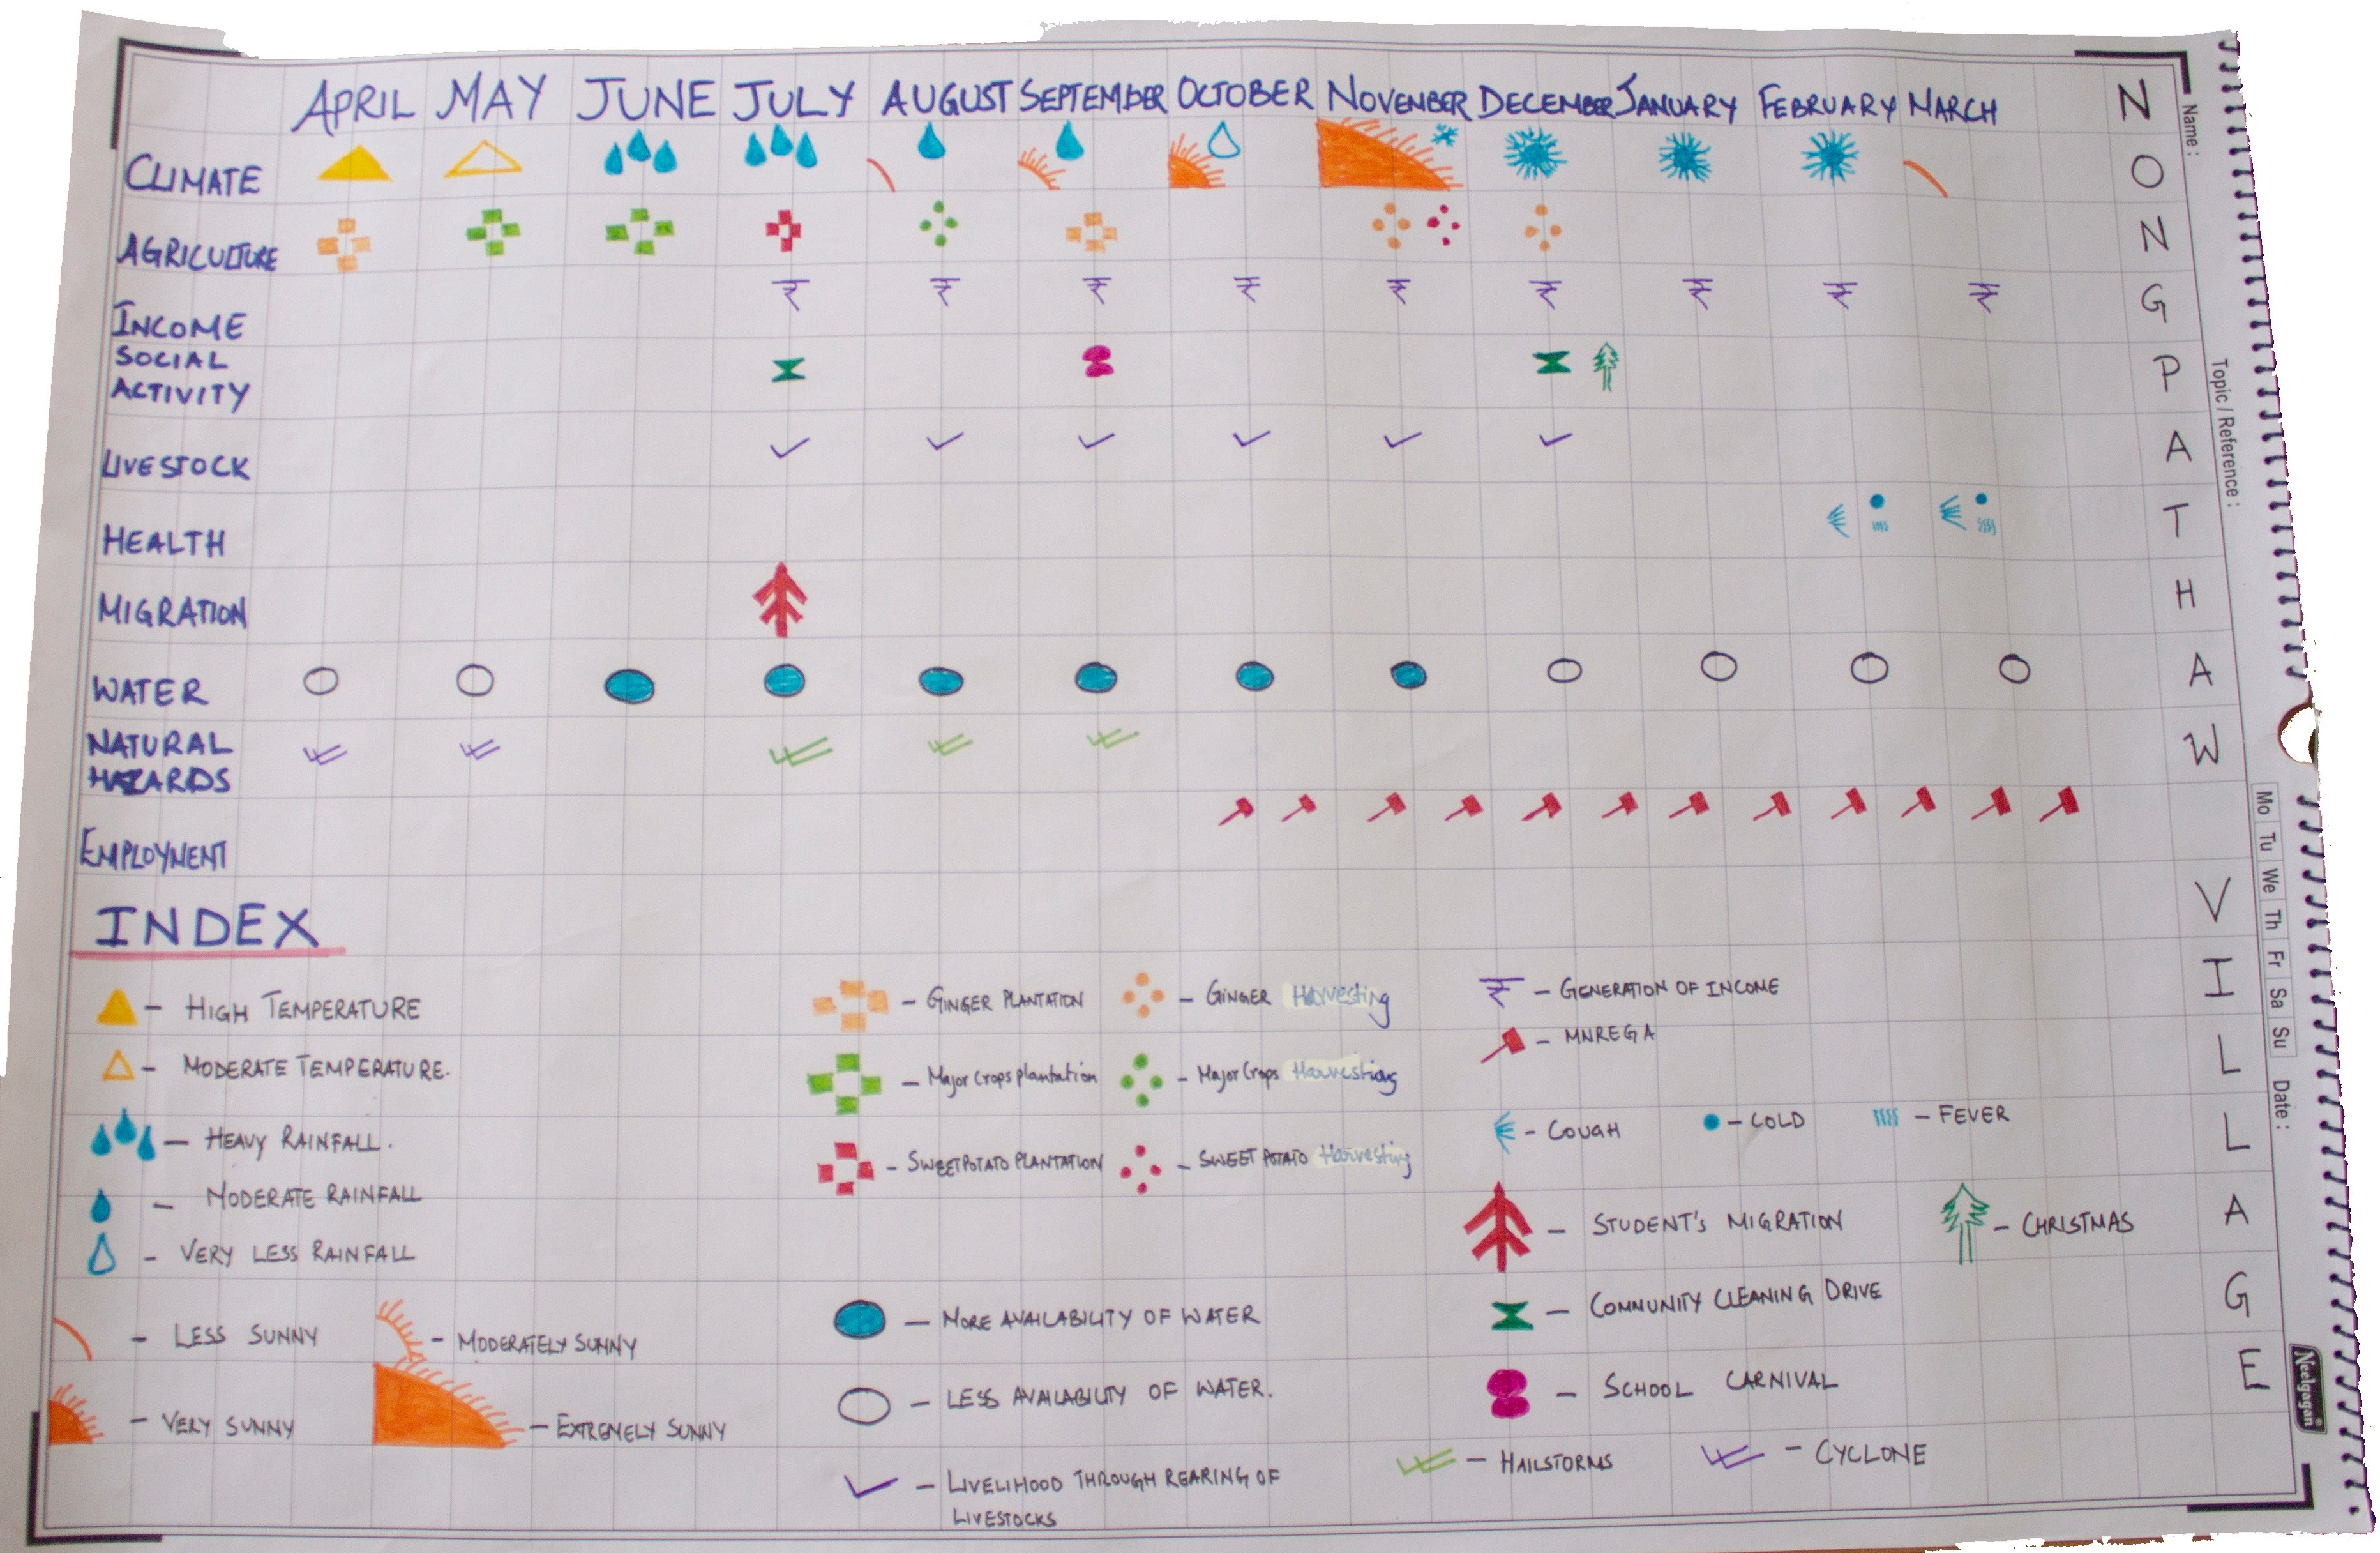 APRIL MAY JUNE JULY AUGUST SEPTEMBER OCTOBER NOVEMBER DECEMBER JANUARY FEBRUARY MARCH
CLIMATE
AGRICULTURE
INCOME
SOCIAL
ACTIVITY
LIVESTOCK
HEALTH
MIGRATION
WATER
NATURAL
HAZARDS
EMPLOYMENT
INDEX
- HIGH TEMPERATURE
- MODERATE TEMPERATURE.
- HEAVY RAINFALL.
- MODERATE RAINFALL
- VERY LESS RAINFALL
- LESS SUNNY
- MODERATELY SUNNY
- VERY SUNNY
- EXTREMELY SUNNY
- GINGER PLANTATION
- GINGER Harvesting
- Major Crops plantation
- Major Crops Harvesting
- SWEETPOTATO PLANTATION
- SWEET POTATO Harvesting
- MORE AVAILABILITY OF WATER
- LESS AVAILABILITY OF WATER.
- LIVELIHOOD THROUGH REARING OF
LIVESTOCKS
₹ - GENERATION OF INCOME
- MNREGA
- COUGH
- COLD
- FEVER
- STUDENT'S MIGRATION
- CHRISTMAS
- COMMUNITY CLEANING DRIVE
- SCHOOL CARNIVAL
- HAILSTORMS
- CYCLONE
NONGPATHAW
VILLAGE
Name :
Topic / Reference :
Mo Tu We Th Fr Sa Su
Date :
Neelgagan